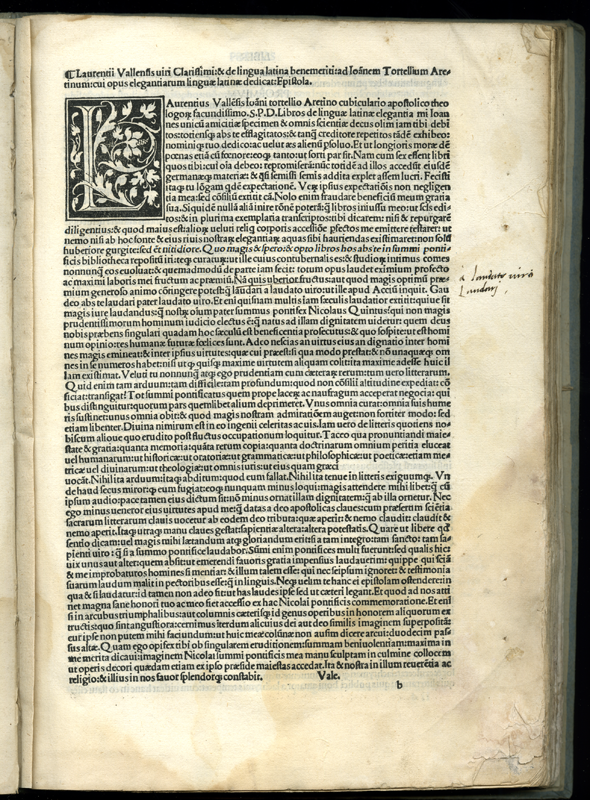 ¶Laurentii Vallensis uiri Clarissimi:& de lingua latina benemeriti:ad Ioãnem Tortellium Are-
tinum:cui opus elegantiarum linguæ latinæ dedicat:Epistola.
LAurentius Vallẽsis Ioãni tortellio Aretino cubiculario apostolico theo
logoꝝ facundissimo.S.P.D.Libros de linguæ latinæ elegantia mi Ioan
nes unicũ amicitiæ specimen & omnis scientiæ decus olim iam tibi debi
tos:totiensq; abs te efflagitatos:& tanq̃ creditore repetitos tãdẽ exhibeo:
nomini q; tuo dedico:ac uelut æs alienũ psoluo.Et ut longioris moræ dẽ
pœnas etiã cũ fœnore:eoq; tanto:ut sorti par sit.Nam cum sex essent libri
quos tibi:cui oĩa debeo: reptomisi:nũc totidẽ ad illos accedũt eiusdẽ
germanæq; materiæ:& q̃si semissi semis addita explet assem lucri.Fecisti
itaq; tu lõgam q̃dẽ expectationẽ.Veꝝ ipsius expectatiõis non negligen
tia mea:sed cõsiliũ extitit cã.Nolo enim fraudare beneficiũ meum gratia
sua.Siquidẽ nullã aliã inire rõnẽ poterã:q̃ libros iniussu meo:ut scis edi-
tos:& in plurima exemplaria transcriptos:tibi dicarem:nisi & repurgarẽ
diligentius:& quod maius est:alioꝝ ueluti reliq̃ corporis accessiõe pfectos me emittere testarer:ut
nemo nisi ab hoc fonte & eius riuis nostraꝝ elegantiaꝝ aquas sibi hauriendas existimaret:non solũ
huberiore gurgite:sed & nitidiore.Quo magis & spero:& opto libros hos abs te in summi ponti-
ficis bibliotheca repositũ iri:teq; curaturũ:ut ille cuius contubernalis es:& studioꝝ intimus comes
nonnunq̃ eos euoluat:& quemadmodũ de parte iam fecit: totum opus laudet eximium profecto
ac maximũ laboris mei fructum ac præmiũ.Nã quis uberior fructus:aut quod magis optimũ præ-
mium generoso animo cõtingere potest:q̃ laudari a laudato uiro:ut ille apud Acciũ inquit. Gau
deo abs te laudari pater laudato uiro.Et eni quisnam multis iam sæculis laudatior extitit:quiue sit
magis iure laudandus:q̃ nostꝝ olum pater summus pontifex Nicolaus Quintus?qui non magis
prudentissimorum hominum iudicio electus ẽ:q̃ natus ad illam dignitatem uidetur: quem deus
nobis præbens singulari quadam hoc sæculũ est beneficentia prosecutus:& quo sospite:ut est homi
num opinio:res humanæ futuræ fœlices sunt.Adeo nescias an uirtus eius an dignatio inter homi
nes magis emineat:& inter ipsius uirtutes:quæ cui præest:si qua modo præstat:& nõ unaquæq; om
nes in se numeros habet:nisi ut q; quisq; maxime uirtutem aliquam colit:ita maxime adesse huic il
lam existimat. Veluti ro nonnunq̃ atq; ego prudentiam cum cæterarꝝ rerum:tum uero litterarum.
Quid enim tam arduum:tam difficile:tam profundum:quod non cõsilii altitudine expediat: cõ
ficiat:transigat? Tot summi pontificatus quem prope lacerꝝ ac naufragum acceperat negocia: qui
bus distinguitur:quorum pars quemlibet alium deprimeret. Vnus omnia curat:omnia suis hume
ris sustinet:unus omnia obit:& quod magis nostram admirationem auget:non fortiter modo: sed
etiam libenter.Diuina nimirum est in eo ingenii celeritas ac uis.Iam uero de litteris quotiens no-
biscum alioue quo erudito post fluctus occupationum loquitur.Taceo qua pronuntiandi maie-
state & gratia:quanta memoria:quãta rerum copia:quanta doctrinarum omnium peritia eluceat
uel humanarum:ut historicæ:ut oratoriæ:ut grammaticæ:ut philosophicæ:ut poeticæ:etiam me-
tricæ uel diuinarum:ut theologiæ:ut omnis iuris:ut eius quam græci
uocãt.Nihil ita arduum:itaq; abditum:quod eum fallat.Nihil ita tenue in litteris exiguumq;. Vn
de haud secus miror:q̃ eum fugiat:eoq; nunquam minus loqui:magis attendere mihi libet:q̃ cũ
ipsum audio:pace tamen eius dictum sit:nõ minus ornat illam dignitatem:q̃ ab illa ornetur. Nec
ego minus ueneror eius uirtutes apud me:q̃ datas a deo apostolicas claues:cum præsertim sciẽtia
sacrarum litterarum clauis uocetur ab eodem deo tributa:quæ aperit:& nemo claudit: claudit &
nemo aperit.Itaq; utraq; manu claues gestat:sapientiæ altera:altera potestatis.Quare ut libere qđ
sentio dicam:uel magis mihi lætandum atq; gloriandum etiã si a tam integro:tam sancto: tam sa-
pienti uiro : q̃ si a summo pontifice laudabor.Sũmi enim pontifices multi fuerunt:sed qualis hic:
uix unus aut alter:quem absit:ut emerendi fauoris gratia impensius laudauerim: quippe qui sciã
& me improbatũ homines si mentiar:& illum talem esse:qui nec seipsum ignoret: & testimonia
suarum laudum malit in pectoribus esse:q̃ in linguis. Neq; uelim te hanc ei epistolam ostendere:in
qua & si laudatur:id tamen non adeo fit:ut has laudes ipse sed ut cæteri legant.Et quod ad nos atti
net magna sane honori tuo ac meo fiet accessio ex hac Nicolai pontificis commemoratione.Et enĩ
si in arcubus triumphalibus:aut columnis cæterisq; id genus operibus in honorem aliquorum ex
tructis:quo sint angustiora:cernimus iterdum alicuius dei aut deo similis imaginem superpositã:
cur ipse non putem mihi faciundum:ut huic meæ colũnæ non ausim dicere arcui:duodecim pas-
sus altæ.Quam ego opifex tibi ob singularem eruditionem:summam beniuolentiam:maxima in
me merita dicaui:imaginem Nicolai summi pontificis mea manu sculptam in culmine collocem:
ut operis decori quædam etiam ex ipso præside maiestas accedat.Ita & nostra in illum reuerẽtia ac
religio:& illius in nos fauor splendorq; constabit. Vale.
b
a laudato uiro
Laudari,